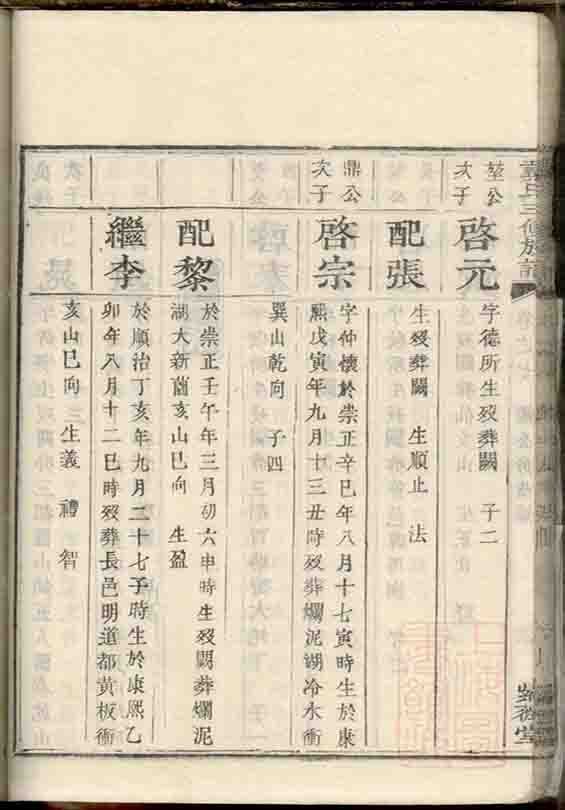 堃公
次子
啓元
字德所生歿葬闕　子二
配張
生歿葬闕　生順止　法
鼎公
次子
啓宗
字仲懷於崇正辛巳年八月十七寅時生於康
熙戊寅年九月十三丑時歿葬爛泥湖冷水衝
巽山乾向　子四
配黎
於崇正壬午年三月初六申時生歿闕葬爛泥
湖大新薗亥山巳向　生盈
繼李
於順治丁亥年九月二十七子時生於康熙乙
卯年八月十二巳時歿葬長邑明道都黃板衝
亥山巳向　生義　禮　智